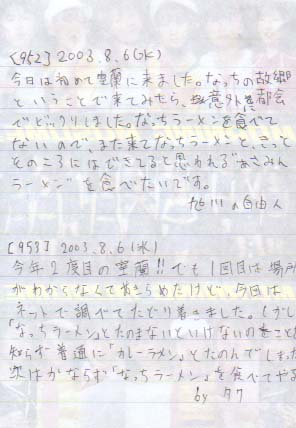 [952] 2003.8.6(水)
今日は初めて室蘭に来ました。なっちの故郷
ということで来てみたら、意外に都会
でビックリしました。なっちラーメンを食べて
ないので、また来てなっちラーメンと、きっと
そのころにはできてると思われる"あさみん
ラーメン"を食べたいです。
旭川の自由人
[953] 2003.8.6(水)
今年2度目の室蘭!!でも1回目は場所
がわからなくてあきらめたけど、今回は
ネットで調べてたどり着きました。しかし
「なっちラーメン」とたのまないといけないのをこと
知らず普通に「カレーラーメン」とたのんでしまった
次はかならず「なっちラーメン」を食べてやる
by タク